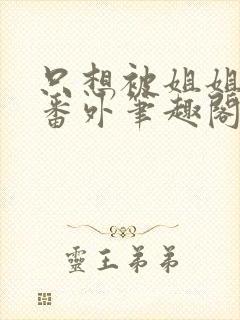 只想被姐姐
番外笔趣阁
靈王弟弟